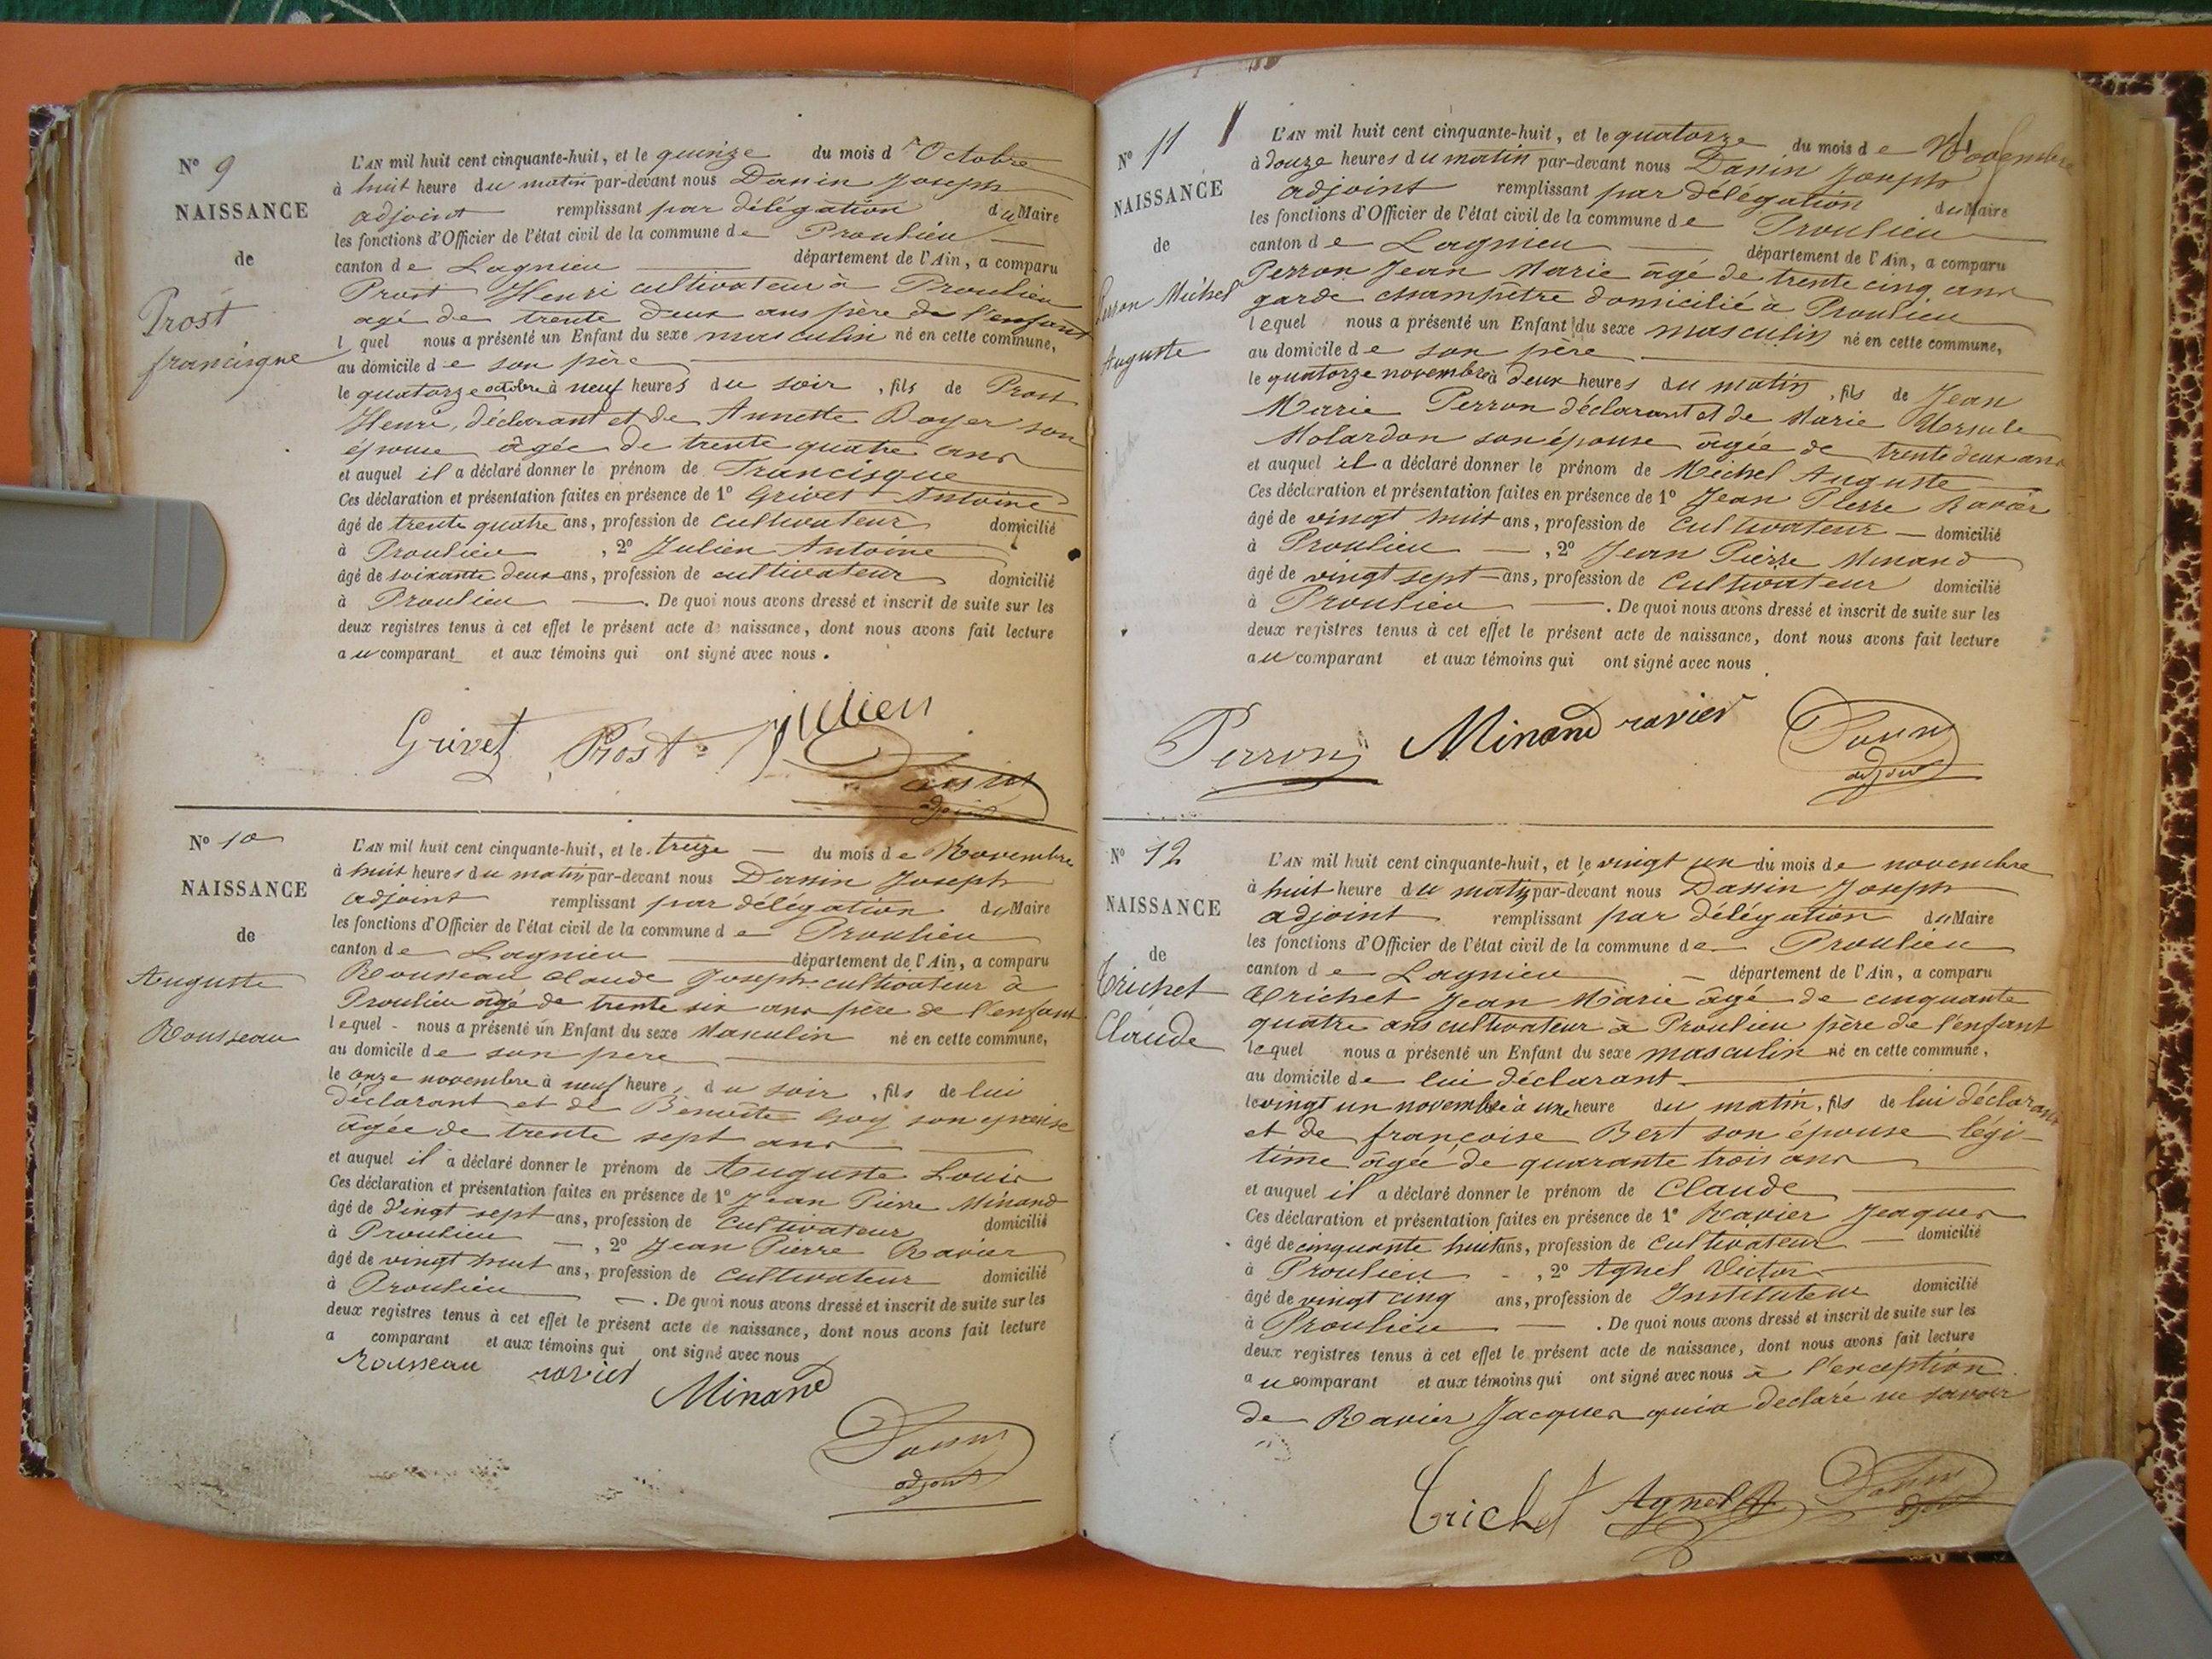 N° 9
NAISSANCE
de
Prost
francisque
L'AN mil huit cent cinquante-huit, et le quinze du mois d'Octobre
à huit heure du matin par-devant nous Dassin Joseph
adjoint remplissant par délégation du Maire
les fonctions d'Officier de l'état civil de la commune de Proulieu
canton de Lagnieu département de l'Ain, a comparu
Prost Henri cultivateur à Proulieu
agé de trente deux ans père de l'enfant
l quel nous a présenté un Enfant du sexe masculin né en cette commune,
au domicile de son père
le quatorze octobre à neuf heures du soir, fils de Prost
Henri, déclarant et de Annette Boyer son
épouse âgée de trente quatre ans
et auquel il a déclaré donner le prénom de Francisque
Ces déclaration et présentation faites en présence de 1° Grivet Antoine
âgé de trente quatre ans, profession de cultivateur domicilié
à Proulieu, 2° Julien Antoine
âgé de soixante deux ans, profession de cultivateur domicilié
à Proulieu. De quoi nous avons dressé et inscrit de suite sur les
deux registres tenus à cet effet le présent acte de naissance, dont nous avons fait lecture
au comparant et aux témoins qui ont signé avec nous.
Grivet Prost Julien
Dassin
adjoint
N° 10
NAISSANCE
de
Auguste
Rousseau
L'AN mil huit cent cinquante-huit, et le treize du mois de Novembre
à huit heures du matin par-devant nous Dassin Joseph
adjoint remplissant par délégation du Maire
les fonctions d'Officier de l'état civil de la commune de Proulieu
canton de Lagnieu département de l'Ain, a comparu
Rousseau Claude Joseph cultivateur à
Proulieu âgé de trente six ans père de l'enfant
lequel nous a présenté un Enfant du sexe Masculin né en cette commune,
au domicile de son pere
le onze novembre à neuf heures du soir, fils de lui
déclarant et de Benoite Goy son épouse
âgée de trente sept ans
et auquel il a déclaré donner le prénom de Auguste Louis
Ces déclaration et présentation faites en présence de 1° Jean Pierre Minand
âgé de vingt sept ans, profession de Cultivateur domicilié
à Proulieu, 2° Jean Pierre Ravier
âgé de vingt huit ans, profession de Cultivateur domicilié
à Proulieu. De quoi nous avons dressé et inscrit de suite sur les
deux registres tenus à cet effet le présent acte de naissance, dont nous avons fait lecture
a comparant et aux témoins qui ont signé avec nous
Rousseau ravier Minand
Dassin
adjoint
N° 11
NAISSANCE
de
Perron Michel
Auguste
L'AN mil huit cent cinquante-huit, et le quatorze du mois de Novembre
à douze heures du matin par-devant nous Dassin Joseph
adjoint remplissant par délégation du Maire
les fonctions d'Officier de l'état civil de la commune de Proulieu
canton de Lagnieu département de l'Ain, a comparu
Perron Jean Marie âgé de trente cinq ans
garde champêtre domicilié à Proulieu
lequel nous a présenté un Enfant du sexe masculin né en cette commune,
au domicile de son père
le quatorze novembre à deux heures du matin, fils de Jean
Marie Perron déclarant et de Marie Ursule
Molardon son épouse âgée de trente deux ans
et auquel il a déclaré donner le prénom de Michel Auguste
Ces déclaration et présentation faites en présence de 1° Jean Pierre Ravier
âgé de vingt huit ans, profession de Cultivateur domicilié
à Proulieu, 2° Jean Pierre Minand
âgé de vingt sept ans, profession de Cultivateur domicilié
à Proulieu. De quoi nous avons dressé et inscrit de suite sur les
deux registres tenus à cet effet le présent acte de naissance, dont nous avons fait lecture
au comparant et aux témoins qui ont signé avec nous.
Perron Minand ravier Dassin
adjoint
N° 12
NAISSANCE
de
Trichet
Claude
L'AN mil huit cent cinquante-huit, et le vingt un du mois de novembre
à huit heure du matin par-devant nous Dassin Joseph
adjoint remplissant par délégation du Maire
les fonctions d'Officier de l'état civil de la commune de Proulieu
canton de Lagnieu département de l'Ain, a comparu
Trichet Jean Marie âgé de cinquante
quatre ans cultivateur à Proulieu père de l'enfant
lequel nous a présenté un Enfant du sexe masculin né en cette commune,
au domicile de lui déclarant
le vingt un novembre à une heure du matin, fils de lui déclarant
et de françoise Bert son épouse légi-
time âgée de quarante trois ans
et auquel il a déclaré donner le prénom de Claude
Ces déclaration et présentation faites en présence de 1° Ravier Jacques
âgé de cinquante huit ans, profession de Cultivateur domicilié
à Proulieu, 2° Agnel Victor
âgé de vingt cinq ans, profession de Instituteur domicilié
à Proulieu. De quoi nous avons dressé et inscrit de suite sur les
deux registres tenus à cet effet le présent acte de naissance, dont nous avons fait lecture
au comparant et aux témoins qui ont signé avec nous à l'exception
de Ravier Jacques qui a declaré ne savoir
Trichet Agnel Dassin
adjoint